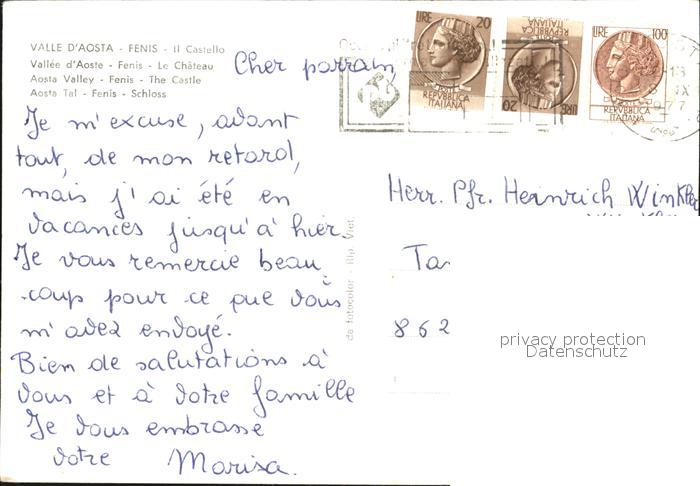 VALLE D'AOSTA - FENIS - Il Castello
Vallée d'Aoste - Fenis - Le Château
Aosta Valley - Fenis - The Castle
Aosta Tal - Fenis - Schloss
Cher parrain,
Je m'excuse, avant
tout, de mon retard,
mais j'ai été en
vacances jusqu'à hier.
Je vous remercie beau
coup pour ce que vous
m'avez envoyé.
Bien de salutations à
vous et à votre famille
Je vous embrasse
votre Marisa.
da fotocolor - Rip. Viet.
LIRE 20
REPVBBLICA
ITALIANA
LIRE 20
REPVBBLICA
ITALIANA
LIRE 100
REPVBBLICA
ITALIANA
Herr. Pfr. Heinrich Winkler
Ta
862
privacy protection
Datenschutz